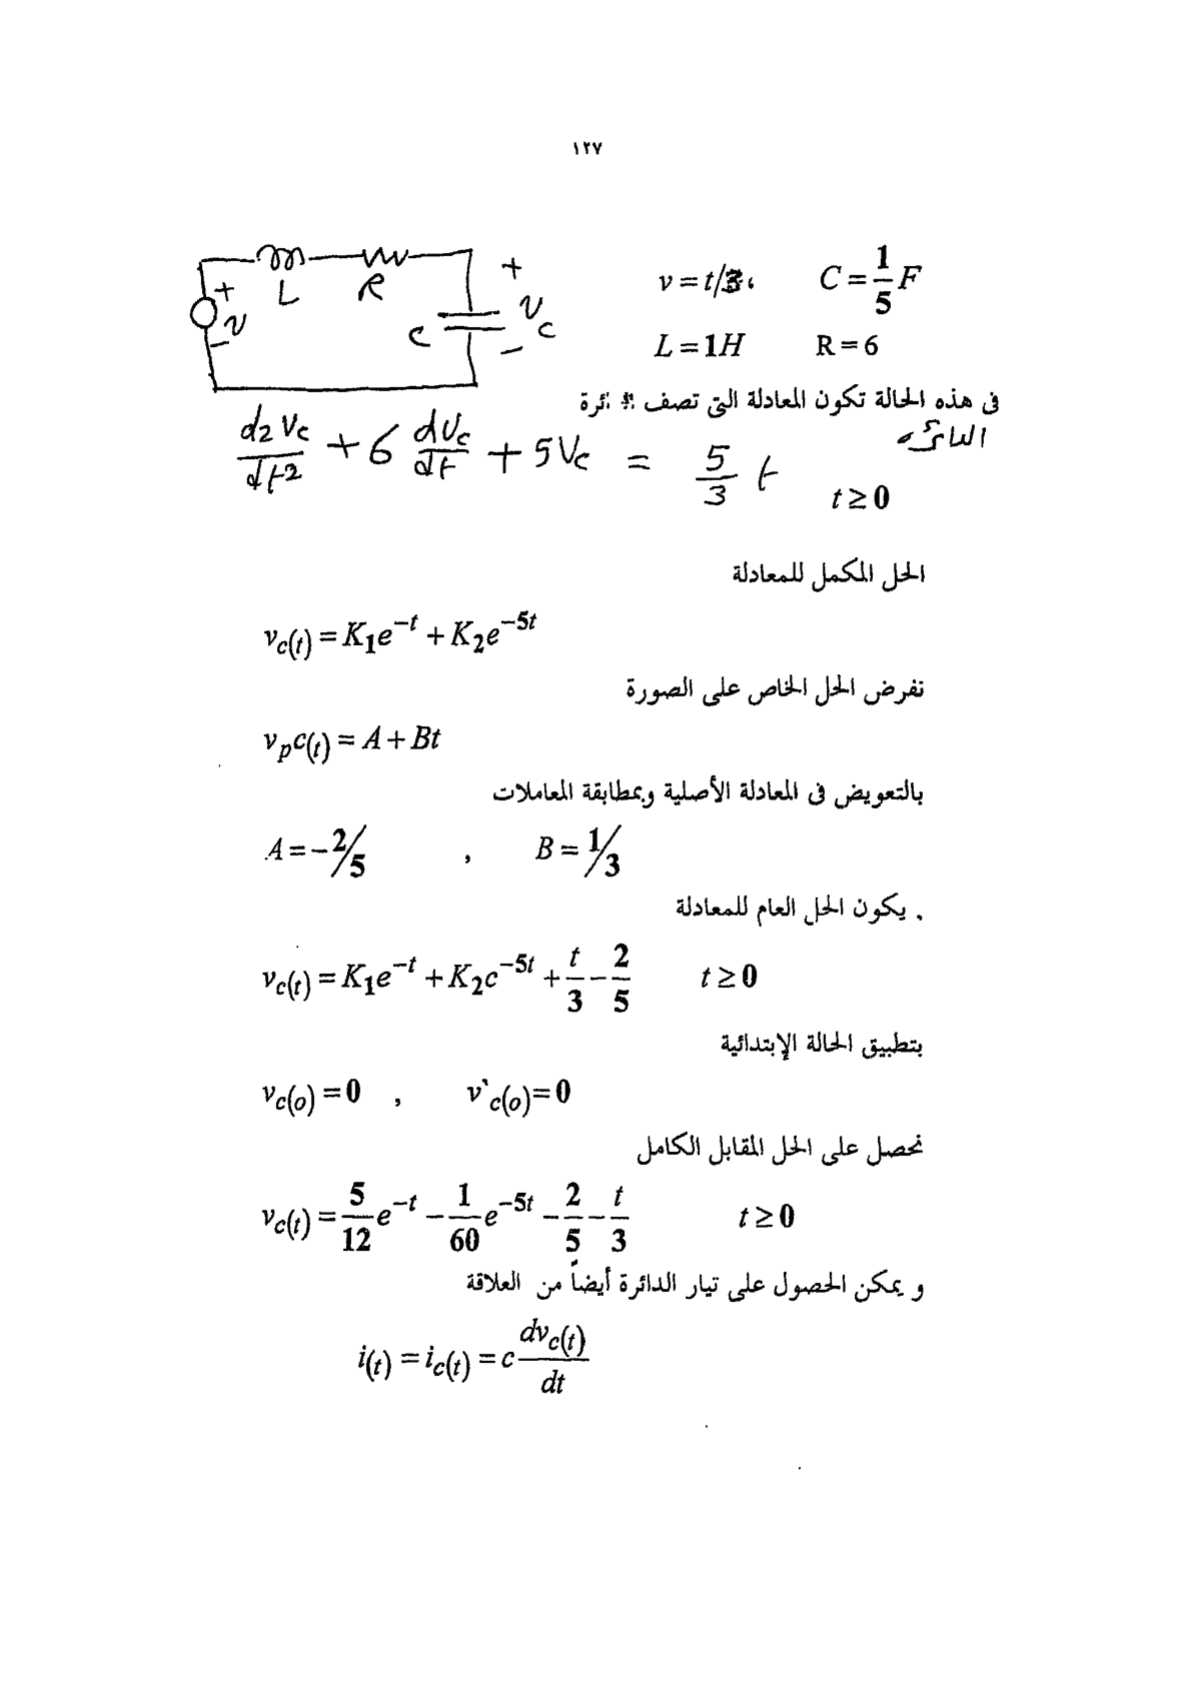 ١٢٧
v = t/3، C = 1/5 F
+ L R + v − C v c −
L = 1H R = 6
فى هذه الحالة تكون المعادلة التى تصف ئرة
الدائره
d2 Vc / dt2 + 6 dVc / dt + 5Vc = 5/3 t
t ≥ 0
الحل المكمل للمعادلة
vc(t) = K1e^−t + K2e^−5t
نفرض الحل الخاص على الصورة
vpc(t) = A + Bt
بالتعويض فى المعادلة الأصلية وبمطابقة المعاملات
A = −2/5 , B = 1/3
. يكون الحل العام للمعادلة
vc(t) = K1e^−t + K2c^−5t + t/3 − 2/5 t ≥ 0
بتطبيق الحالة الإبتدائية
vc(o) = 0 , v`c(o) = 0
نحصل على الحل المقابل الكامل
vc(t) = 5/12 e^−t − 1/60 e^−5t − 2/5 − t/3 t ≥ 0
و يمكن الحصول على تيار الدائرة أيضاً من العلاقة
i(t) = ic(t) = c dvc(t)/dt